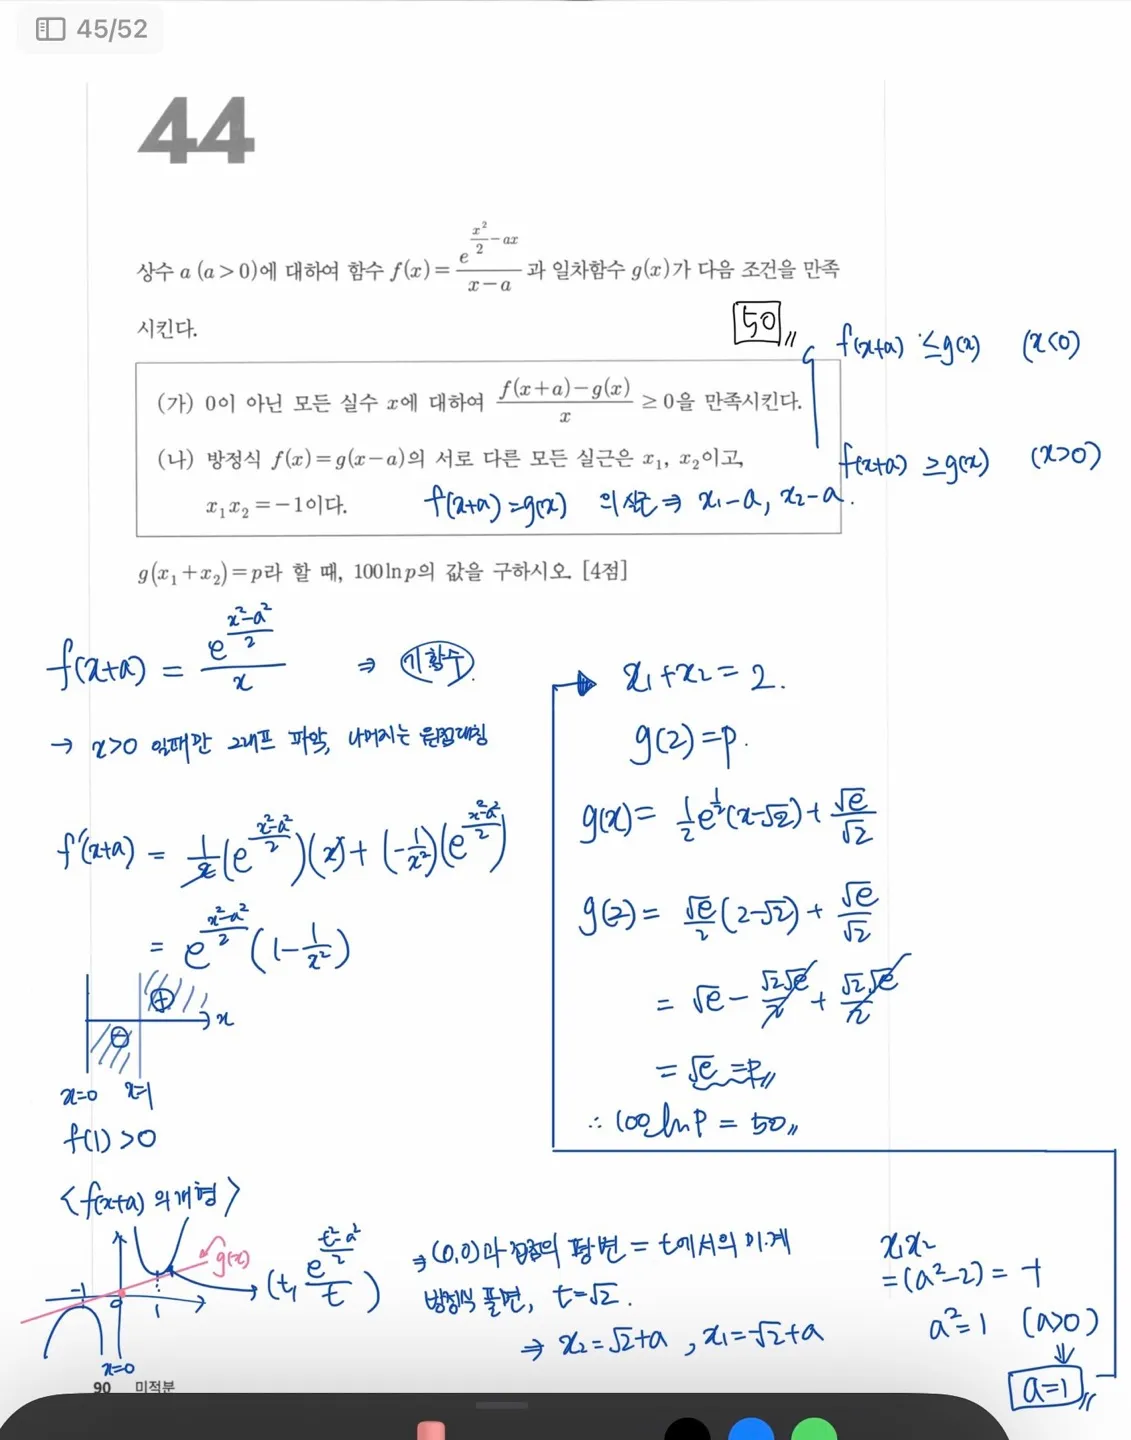 45/52
44
상수 a (a>0)에 대하여 함수 f(x)=e^{x²/2-ax}/(x-a)과 일차함수 g(x)가 다음 조건을 만족
시킨다.
50
f(x+a) ≤g(x) (x<0)
(가) 0이 아닌 모든 실수 x에 대하여 (f(x+a)-g(x))/x ≥0을 만족시킨다.
(나) 방정식 f(x)=g(x-a)의 서로 다른 모든 실근은 x₁, x₂이고,
f(x+a) ≥g(x) (x>0)
x₁x₂=-1이다.
f(x+a)=g(x) 의 실근⇒ x₁-a, x₂-a.
g(x₁+x₂)=p라 할 때, 100lnp의 값을 구하시오. [4점]
f(x+a) = e^{(x²-a²)/2}/x ⇒ 기함수.
→ x>0 일때만 그래프 파악, 나머지는 원점대칭
f'(x+a) = 1/x(e^{(x²-a²)/2})(x)+(-1/x²)(e^{(x²-a²)/2})
= e^{(x²-a²)/2}(1-1/x²)
⊕
⊖
x
x=0 x=1
f(1)>0
<f(x+a) 의 개형>
g(x)
-1
0
1
x=0
(t, e^{(t²-a²)/2}/t)
⇒(0,0)과 접점의 평변 = t에서의 미계
방정식 풀면, t=√2.
⇒ x₂=√2+a, x₁=-√2+a
x₁x₂
=(a²-2)=-1
a²=1 (a>0)
⇓
a=1
x₁+x₂=2.
g(2)=p.
g(x)= 1/2e^{1/2}(x-√2)+√e/√2
g(2)= √e/2(2-√2)+√e/√2
= √e-√2√e/2+√2√e/2
= √e =p
∴ 100lnp = 50
90 미적분